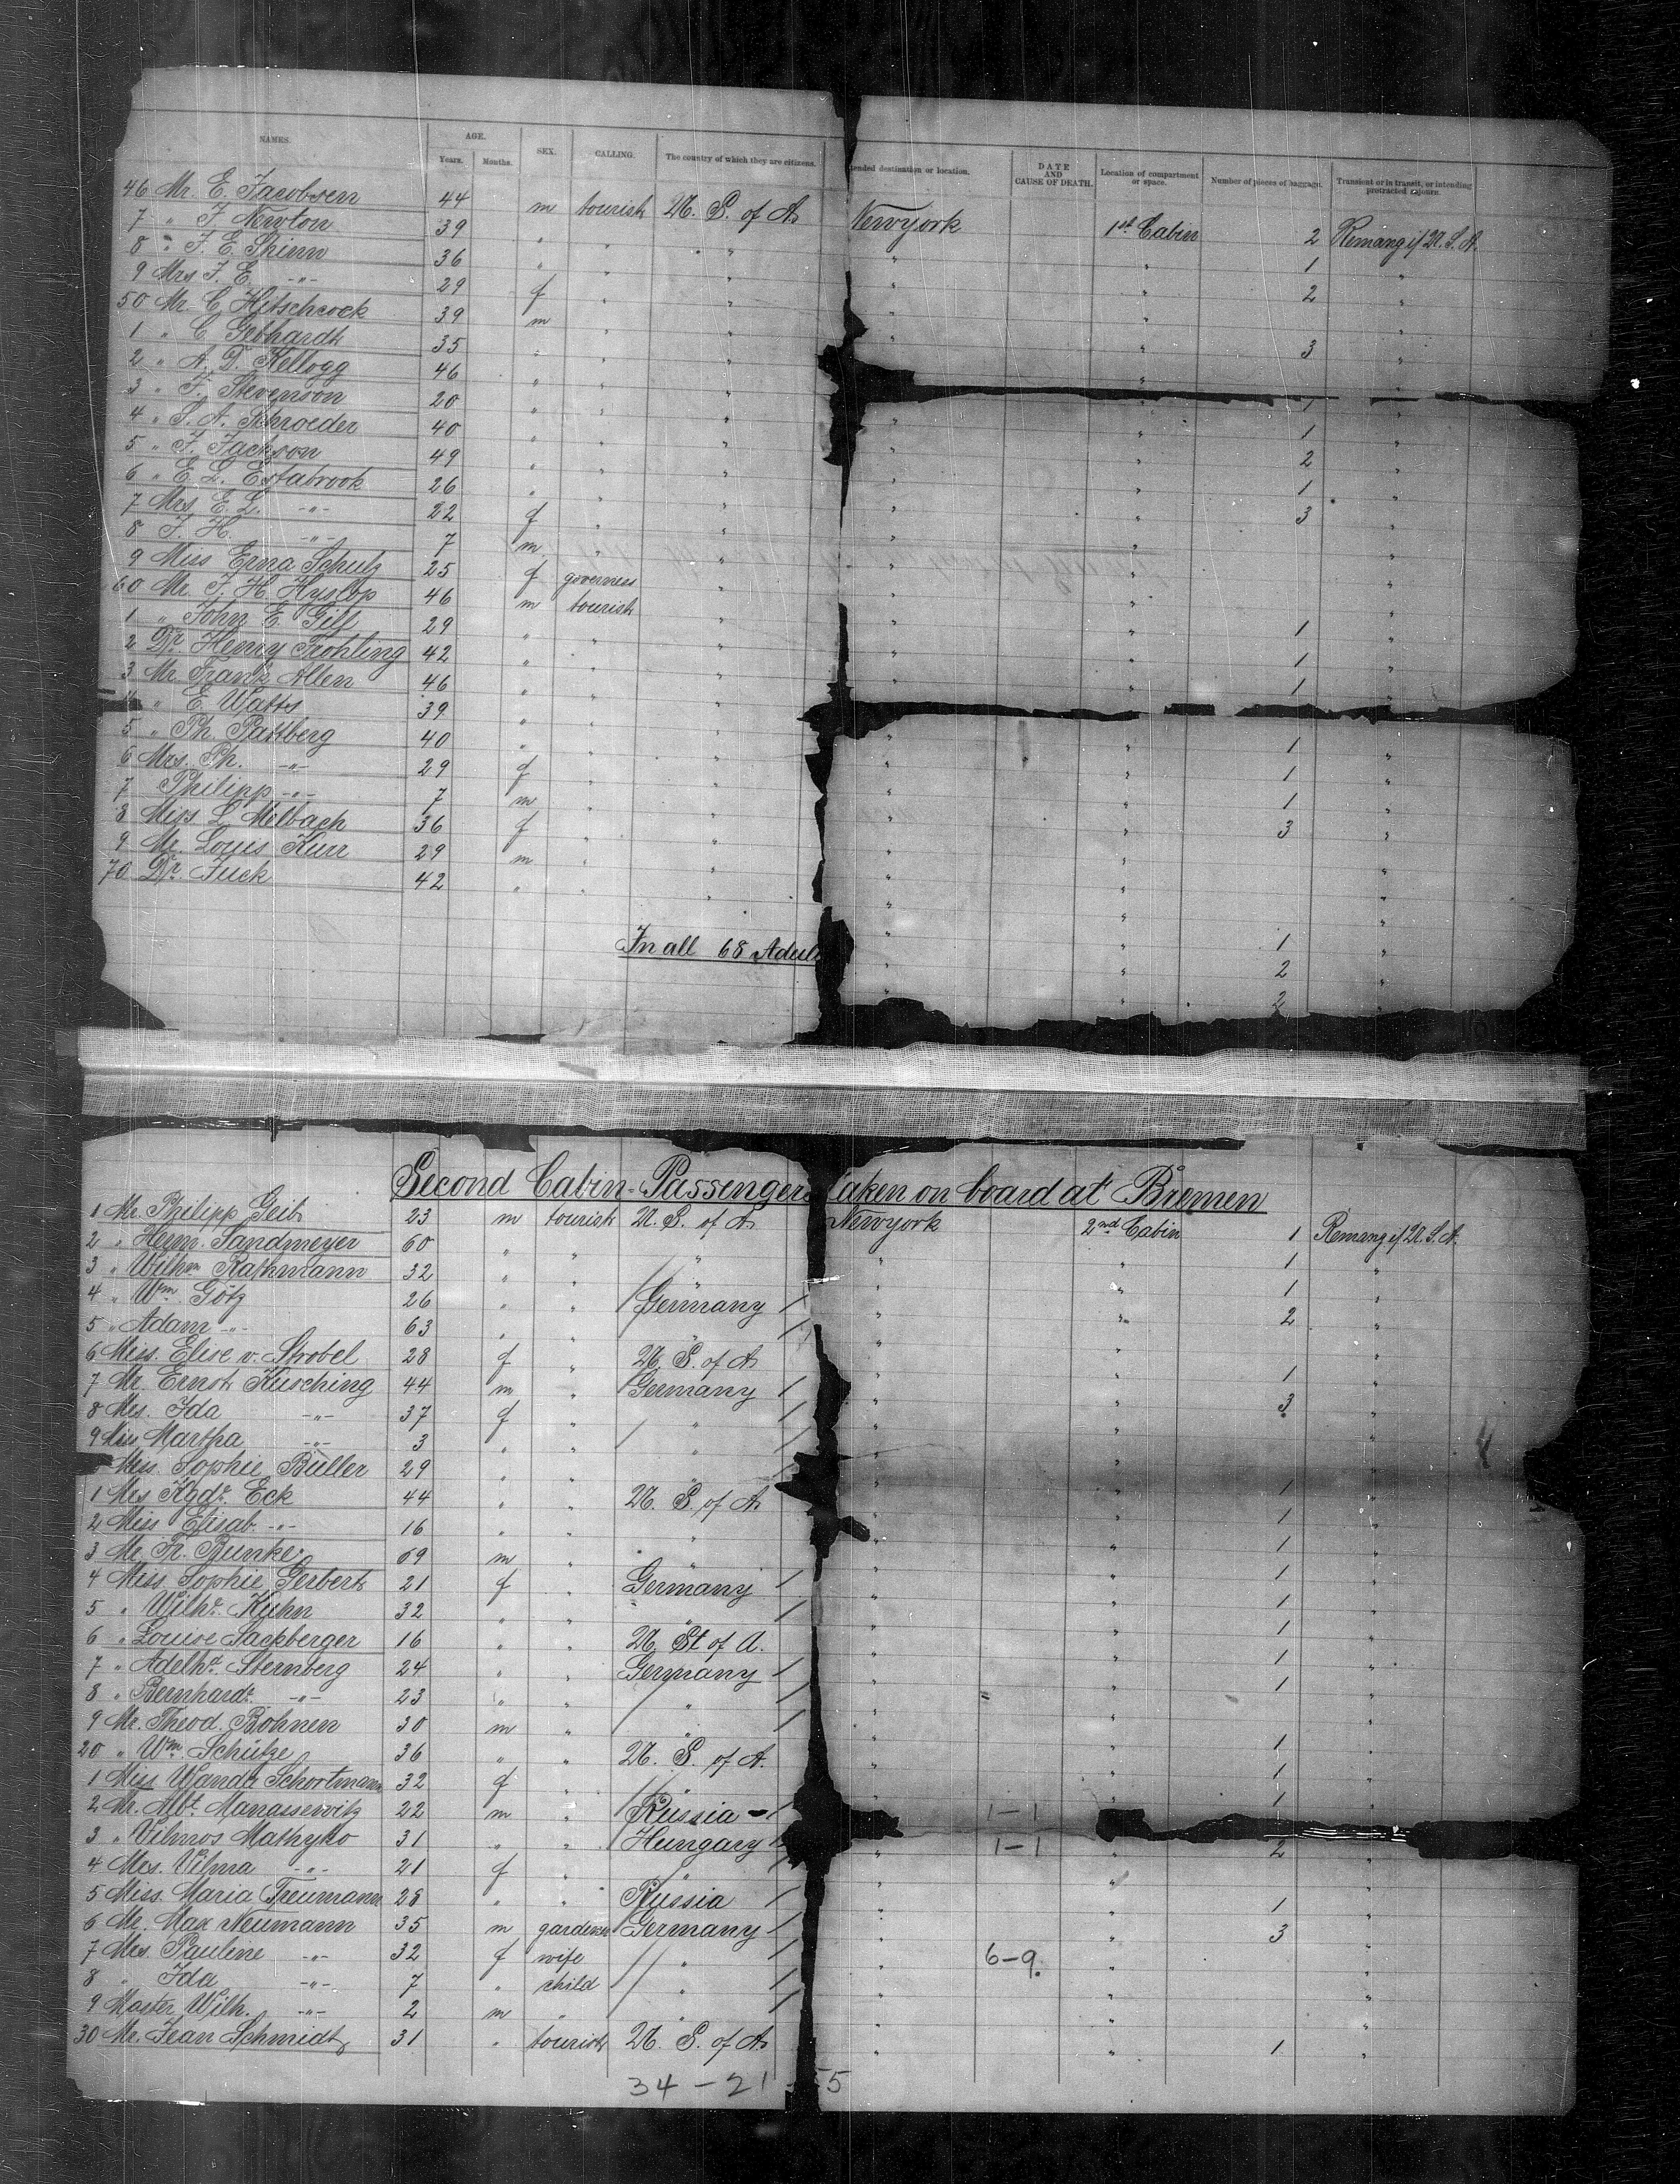 NAMES. AGE. Years. Months. SEX. CALLING. The country of which they are citizens. tended destination or location. DATE AND CAUSE OF DEATH. Location of compartment or space. Number of pieces of baggage. Transient or in transit, or intending protracted sojourn.
46 Mr. E. Jacobsen 44 m tourist U. S. of A. Newyork 1st Cabin 2 Remang if U. S. A.
7 " J. Newton 39 " " " " " 1 "
8 " F. E. Shinn 36 " " " " " 2 "
9 Mrs F. E. -"- 29 f " " " "
50 Mr. C. Hitschcock 39 m " " " " 3 "
1 " C. Gebhardt 35 " " " " "
2 " A. D. Kellogg 46 " " " " " 1 "
3 " F. Stevenson 20 " " " " " 1 "
4 " S. A. Schroeder 40 " " " " " 2 "
5 " F. Jackson 49 " " " " " 1 "
6 " E. L. Estabrook 26 " " " " " 3 "
7 Mrs. E. L. -"- 22 f " " " "
8 F. H. -"- 7 m " " " "
9 Miss Erna Schulz 25 f governess " " "
60 Mr. J. H. Hyslop 46 m tourist " " " 1 "
1 " John E. 29 " " " " " 1 "
2 Dr. Henry Frohling 42 " " " " " 1 "
3 Mr Frank Allen 46 " " "
4 " E. Watts 39 " " " " " 1 "
5 " Ph. Pattberg 40 " " " " " 1 "
6 Mrs. Ph. -"- 29 f " " " " 1 "
7 Philipp -"- 7 m " " " " 3 "
8 Miss L. Melbach 36 f " " " "
9 Mr. Louis Kurr 29 m " " " "
70 Dr. Juck 42 " " " " "
In all 68 Adul " " 1 "
" " 2 "
" " 2 "
Second Cabin-Passengers taken on board at Bremen
1 Mr. Philipp Geib 23 m tourist U. S. of A. Newyork 2nd Cabin 1 Remang if U. S. A.
2 " Heinr. Sandmeyer 60 " " " " " 1 "
3 " Wilhm Rathmann 32 " " " " " 1 "
4 " Wm. Götz 26 " " Germany " " 2 "
5 " Adam -"- 63 " " " " " "
6 Miss. Elise v. Strobel 28 f " U. S. of A. " " 1 "
7 Mr. Ernst Kusching 44 m " Germany " " 3 "
8 Mrs. Ida -"- 37 f " " " " "
9 Miss Martha -"- 3 " " " " " "
Miss. Sophie Büller 29 " " " " " 1 "
1 Mrs Kgdr. Eck 44 " " U. S. of A. " " 1 "
2 Miss Elisab. -"- 16 " " " " " 1 "
3 Mr. Fr. Bunke 69 m " " " 1 "
4 Miss. Sophie Gerbert 21 f " Germany " " 1 "
5 " Wilhe. Kuhn 32 " " " " " 1 "
6 " Louise Sackberger 16 " " U. St of A. " " 1 "
7 " Adelhd. Sternberg 24 " " Germany " " 1 "
8 " Bernhardt. -"- 23 " " " " " "
9 Mr. Theod. Bohnen 30 m " " " " 1 "
20 " Wm. Schütze 36 " " U. S. of A. " " 1 "
1 Miss Wanda Schortmann 32 f " " " " 1 "
2 Mr. Albt. Manassewitz 22 m " Russia - 1-1
3 " Vilmos Mathyko 31 " " Hungary " 1-1 " 2 "
4 Mrs. Vilma -"- 21 f " " " " "
5 Miss. Maria Treumann 28 " " Russia " " 1 "
6 Mr. Max Neumann 35 m gardener Germany " " 3 "
7 Mrs. Pauline -"- 32 f wife " " 6-9. " "
8 " Ida -"- 7 " child " " " "
9 Master Wilh. -"- 2 m " " " " "
30 Mr. Jean Schmidt 31 " tourist U. S. of A. " " 1 "
34 - 21 - 5